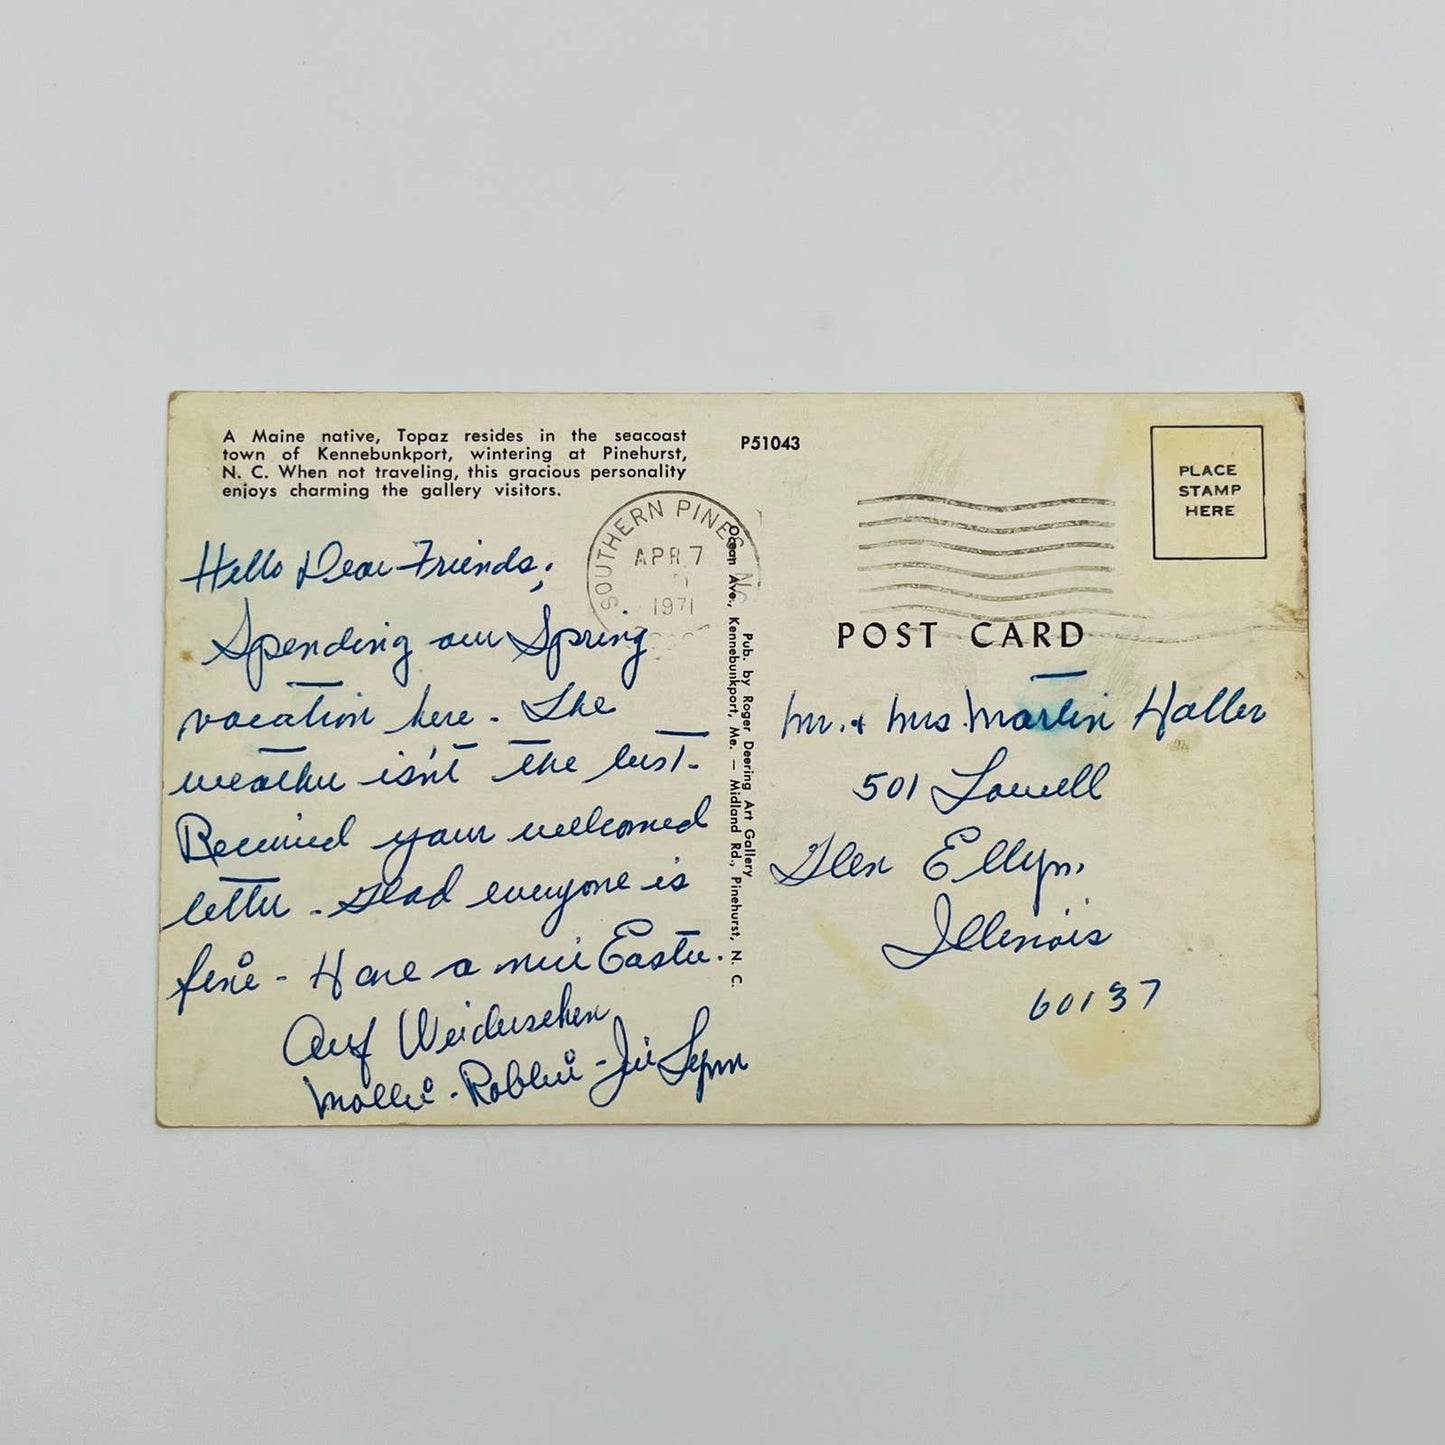 A Maine native, Topaz resides in the seacoast
town of Kennebunkport, wintering at Pinehurst,
N. C. When not traveling, this gracious personality
enjoys charming the gallery visitors.
P51043
PLACE
STAMP
HERE
SOUTHERN PINES NC
APR 7
1971
Hello Dear Friends;
Spending our Spring
vacation here. The
weather isn't the best.
Received your welcomed
letter. Glad everyone is
fine - Have a nice Easter.
Auf Weidersehen
Mollie - Robbie - Jei Lynn
Pub. by Roger Deering Art Gallery
Ocean Ave., Kennebunkport, Me. — Midland Rd., Pinehurst, N. C.
POST CARD
Mr. + Mrs. Martin Haller
501 Lowell
Glen Ellyn,
Illinois
60137